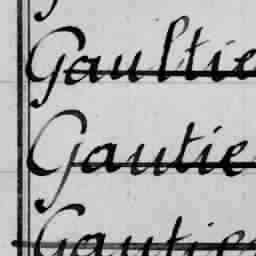 Gaultie
Gautie
Gautie